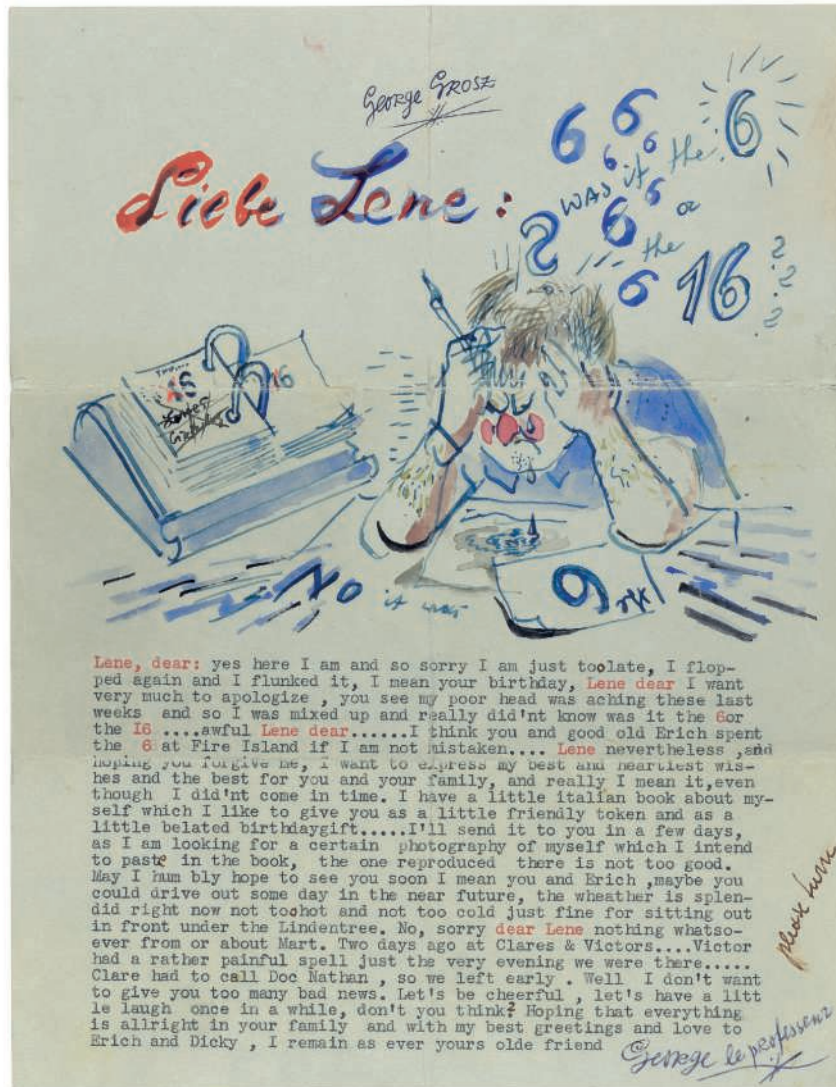 George Grosz
Liebe Lene:
6 6 6
6 6 6
was it the
6 6 or
the
6 16
? ? ?
16
16
No it was
6
Lene, dear: yes here I am and so sorry I am just toolate, I flop-
ped again and I flunked it, I mean your birthday, Lene dear I want
very much to apologize , you see my poor head was aching these last
weeks and so I was mixed up and really did'nt know was it the 6or
the I6 ....awful Lene dear......I think you and good old Erich spent
the 6 at Fire Island if I am not mistaken.... Lene nevertheless ,and
hoping you forgive me, I want to express my best and heartiest wis-
hes and the best for you and your family, and really I mean it,even
though I did'nt come in time. I have a little italian book about my-
self which I like to give you as a little friendly token and as a
little belated birthdaygift.....I'll send it to you in a few days,
as I am looking for a certain photography of myself which I intend
to paste in the book, the one reproduced there is not too good.
May I hum bly hope to see you soon I mean you and Erich ,maybe you
could drive out some day in the near future, the wheather is splen-
did right now not toohot and not too cold just fine for sitting out
in front under the Lindentree. No, sorry dear Lene nothing whatso-
ever from or about Mart. Two days ago at Clares & Victors....Victor
had a rather painful spell just the very evening we were there.....
Clare had to call Doc Nathan , so we left early . Well I don't want
to give you too many bad news. Let's be cheerful , let's have a litt
le laugh once in a while, don't you think? Hoping that everything
is allright in your family and with my best greetings and love to
Erich and Dicky , I remain as ever yours olde friend
George le professeur
please turn